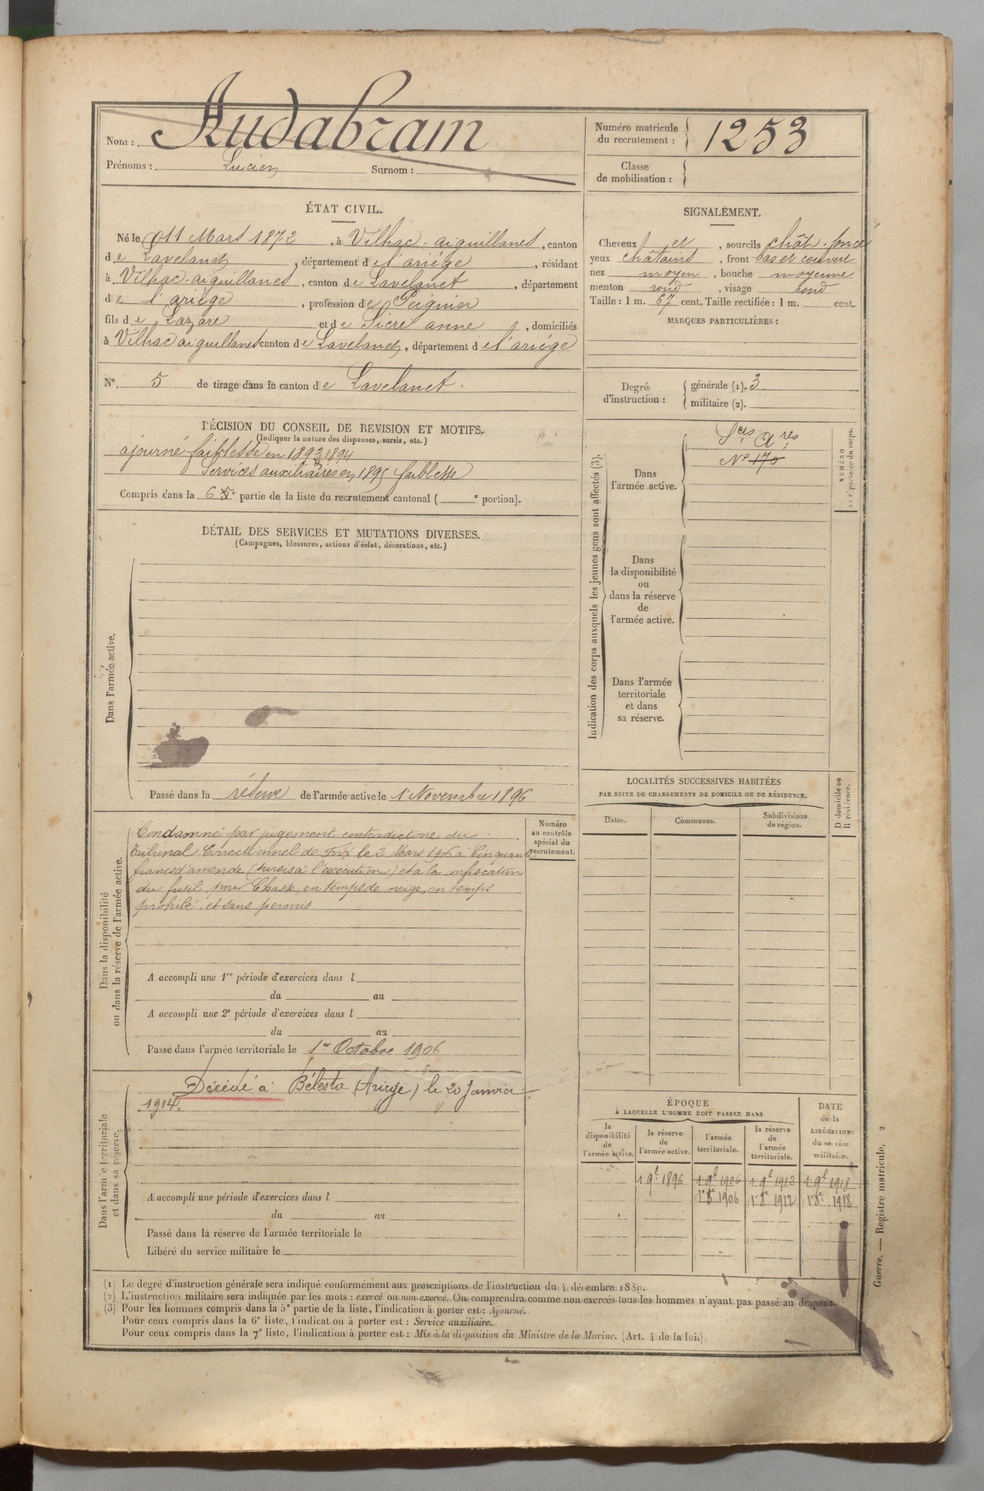 Nom : Audabram
Prénoms : Lucien Surnom :
Numéro matricule du recrutement : 1253
Classe de mobilisation :
ÉTAT CIVIL.
Né le 11 Mars 1872, à Vilhac-aiguillanes, canton
de Lavelanet, département de l'ariège, résidant
à Vilhac-aiguillanes, canton de Lavelanet, département
de l'ariège, profession de Peignier
fils de Lazare et de Sicre anne, domiciliés
à Vilhac aiguillanes canton de Lavelanet, département de l'ariège
N° 5 de tirage dans le canton de Lavelanet.
SIGNALEMENT.
Cheveux et, sourcils chât. foncé
yeux châtains, front bas et couvert
nez moyen, bouche moyenne
menton rond, visage rond
Taille : 1 m. 67 cent. Taille rectifiée : 1 m. cent.
MARQUES PARTICULIÈRES :
Degré d'instruction :
générale (1). 3
militaire (2).
DÉCISION DU CONSEIL DE REVISION ET MOTIFS.
(Indiquer la nature des dispenses, sursis, etc.)
ajourné faiblesse en 1893 1894
Services auxiliaires en 1895 faiblesse
Compris dans la 6e partie de la liste du recrutement cantonal ( e portion).
Indication des corps auxquels les jeunes gens sont affectés (3).
Dans l'armée active.
Sces Ares
N° 170
NUMÉRO
Dans la disponibilité ou dans la réserve de l'armée active.
Dans l'armée territoriale et dans sa réserve.
DÉTAIL DES SERVICES ET MUTATIONS DIVERSES.
(Campagnes, blessures, actions d'éclat, décorations, etc.)
Dans l'armée active.
Passé dans la réserve de l'armée active le 1 Novembre 1896
Dans la disponibilité ou dans la réserve de l'armée active.
Numéro au contrôle spécial du recrutement.
Condamné par jugement contradictoire du
tribunal Correctionnel de Foix le 2 Mars 1906 à Cinquante
francs d'amende (sursis à l'exécution) et à la confiscation
du fusil, pour Chasse, en temps de neige, en temps
prohibé, et sans permis
A accompli une 1re période d'exercices dans l
du au
A accompli une 2e période d'exercices dans l
du au
Passé dans l'armée territoriale le 1er Octobre 1906
Dans l'armée territoriale et dans sa réserve.
Décédé à Bélesta (Ariège) le 20 Janvier
1914.
A accompli une période d'exercices dans l
du au
Passé dans la réserve de l'armée territoriale le
Libéré du service militaire le
LOCALITÉS SUCCESSIVES HABITÉES
PAR SUITE DE CHANGEMENTS DE DOMICILE OU DE RÉSIDENCE.
Dates. Communes. Subdivisions de région. D domicile ou R résidence.
ÉPOQUE
À LAQUELLE L'HOMME DOIT PASSER DANS
la disponibilité de l'armée active. la réserve de l'armée active. l'armée territoriale. la réserve de l'armée territoriale. DATE de la LIBÉRATION du service militaire.
1 9e 1896 1 9e 1906 1 9e 1912 1 9e 1918
1er 8e 1906 1er 8e 1912 1er 8e 1918
Guerre. — Registre matricule, 2
(1) Le degré d'instruction générale sera indiqué conformément aux prescriptions de l'instruction du 4 décembre 1889.
(2) L'instruction militaire sera indiquée par les mots : exercé ou non exercé. On comprendra comme non exercés tous les hommes n'ayant pas passé au drapeau.
(3) Pour les hommes compris dans la 5e partie de la liste, l'indication à porter est : Ajourné.
Pour ceux compris dans la 6e liste, l'indication à porter est : Service auxiliaire.
Pour ceux compris dans la 7e liste, l'indication à porter est : Mis à la disposition du Ministre de la Marine. (Art. 4 de la loi)